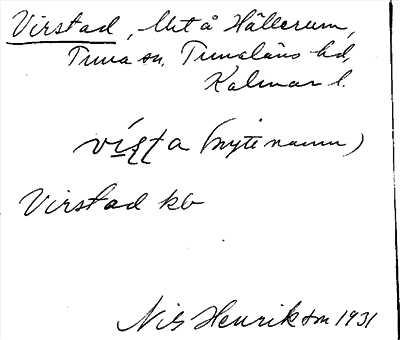 Virstad, Ut å Hällerum,
Tuna sn, Tunaläns hd,
Kalmar l.
(nytt namn)
Virstad kb
Nils Henrikson 1931